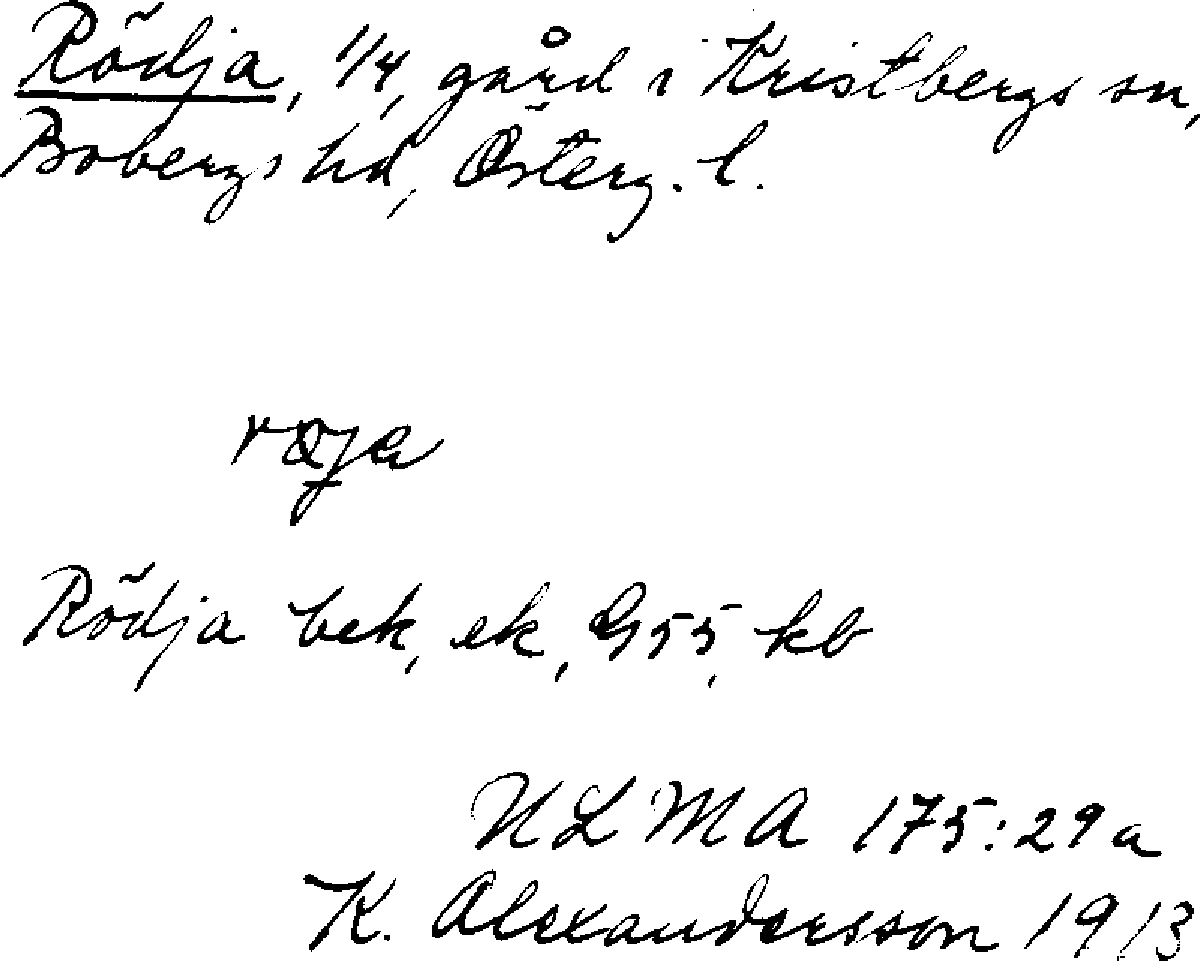 Rödja, 1/4, gård i Kristbergs sn,
Bobergs hd, Österg. l.
Rödja bek, ek, G55, kb
ULMA 175:29a
K. Alexandersson 1913